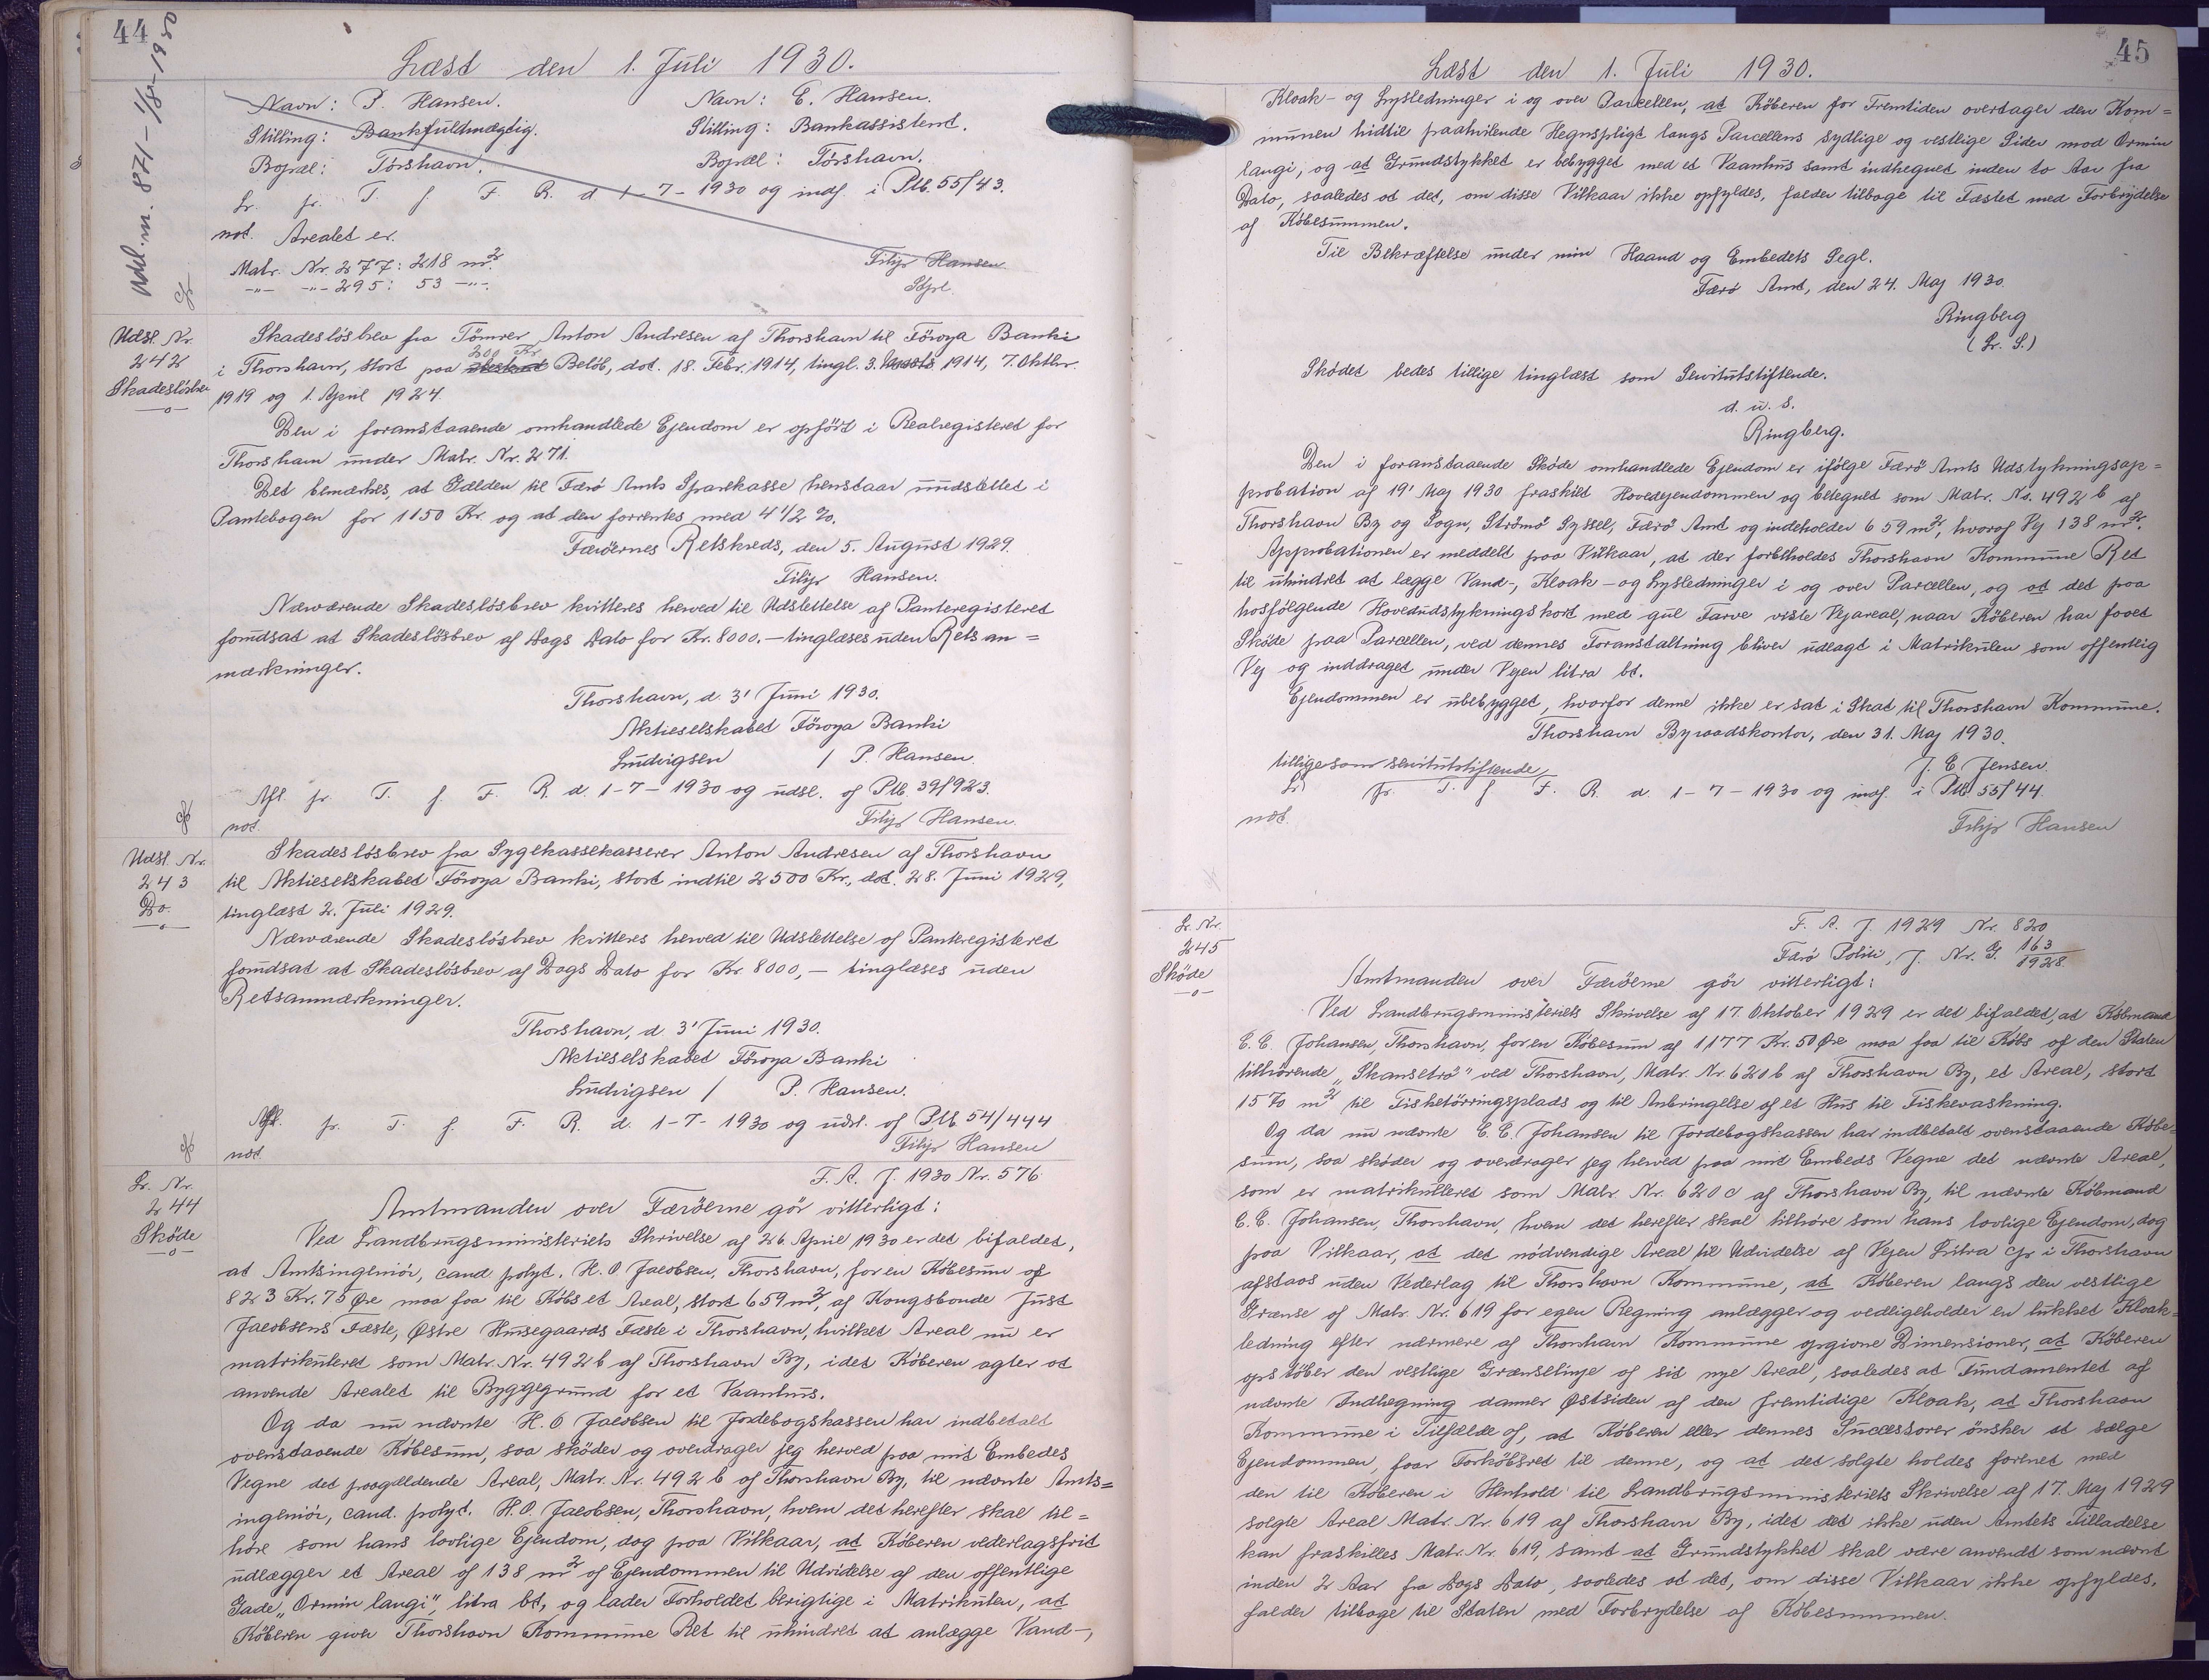 44
Læst den 1. Juli 1930.
Udsl. m. 871 - 1/8-1930
Navn: P. Hansen. Navn: E. Hansen.
Stilling: Bankfuldmægtig. Stilling: Bankassistent.
Bopæl: Tórshavn. Bopæl: Tórshavn.
Lr. pr. T. f. F. R. d 1-7-1930 og indf. i Ptb. 55/43.
not. Arealet er.
Matr. Nr. 277: 218 m².
-"- -"- 295: 53 -"-.
Filip Hansen
Udsl. Nr.
242
Skadesløsbrev
Skadesløsbrev fra Tömrer Anton Andresen af Thorshavn til Föroya Banki
i Thorshavn, stort paa 200 Kr Beløb, dat. 18. Febr. 1914, tingl. 3. Marts 1914, 7. Oktbr.
1919 og 1. April 1924.
Den i foranstaaende omhandlede Ejendom er opført i Realregisteret for
Thorshavn under Matr. Nr. 271.
Det bemærkes, at Gælden til Færö Amts Sparekasse henstaar uudslettet i
Pantebogen for 1150 Kr. og at den forrentes med 4 1/2 %.
Færöernes Retskreds, den 5. August 1929.
Filip Hansen.
Nærværende Skadeslösbrev kvitteres herved til Udslettelse af Panteregisteret
forudsat at Skadeslösbrev af Dags Dato for Kr. 8000.- tinglæses uden Rets an=
mærkninger.
Thorshavn, d. 3' Juni 1930.
Aktieselskabet Föroya Banki
Ludvigsen / P. Hansen.
Afl. pr. T. f. F. R. d. 1-7-1930 og udsl. af Ptb. 39/923.
not. Filip Hansen.
Udsl. Nr.
243
Do.
Skadeslösbrev fra Sygekassekasserer Anton Andresen af Thorshavn
til Aktieselskabet Föroya Banki, stort indtil 2500 Kr., dat. 28. Juni 1929,
tinglæst 2. Juli 1929.
Nærværende Skadeslösbrev kvitteres herved til Udslettelse af Panteregisteret
forudsat at Skadeslösbrev af Dags Dato for Kr 8000,- tinglæses uden
Retsanmærkninger.
Thorshavn, d. 3' Juni 1930.
Aktieselskabet Föroya Banki
Ludvigsen / P. Hansen.
Afl. pr. T. f. F. R. d. 1-7-1930 og udsl. af Ptb 54/444
not. Filip Hansen
Lr. Nr.
244
Sköde
F. A. J. 1930 Nr. 576
Amtmanden over Færöerne gör vitterligt:
Ved Landbrugsministeriets Skrivelse af 26 April 1930 er det bifaldet,
at Amtsingeniör, cand. polyt. H. O. Jacobsen, Thorshavn, for en Köbesum af
823 Kr. 75 Øre maa faa til Köbs et Areal, stort 659 m², af Kongsbonde Just
Jacobsens Fæste, Østre Husegaards Fæste i Thorshavn, hvilket Areal nu er
matrikuleret som Matr. Nr. 492 b af Thorshavn By, idet Köberen agter at
anvende Arealet til Byggegrund for et Vaanhus.
Og da nu nævnte H. O Jacobsen til Jordebogskassen har indbetalt
ovenstaaende Köbesum, saa sköder og overdrager jeg herved paa mit Embedes
Vegne det paagældende Areal, Matr. Nr. 492 b af Thorshavn By, til nævnte Amts=
ingeniör, cand. polyt. H. O. Jacobsen, Thorshavn, hvem det herefter skal til=
höre som hans lovlige Ejendom, dog paa Vilkaar, at Köberen vederlagsfrit
udlægger et Areal af 138 m² af Ejendommen til Udvidelse af den offentlige
Gade „Ormin langi", litra bt, og lader Forholdet berigtige i Matrikulen, at
Köberen giver Thorshavn Kommune Ret til uhindret at anlægge Vand-,
45
Læst den 1. Juli 1930.
Kloak- og Lysledninger i og over Parcellen, at Köberen for Fremtiden overtager den Kom=
munen hidtil paahvilende Hegnspligt langs Parcellens sydlige og vestlige Sider mod Ormin
langi, og at Grundstykket er bebygget med et Vaanhus samt indhegnet inden to Aar fra
Dato, saaledes at det, om disse Vilkaar ikke opfyldes, falder tilbage til Fæstet med Forbrydelse
af Köbesummen.
Til Bekræftelse under min Haand og Embedets Segl.
Færö Amt, den 24. Maj 1930.
Ringberg
(Lr. S.)
Sködet bedes tillige tinglæst som Servitutstiftende.
d. u. s.
Ringberg.
Den i foranstaaende Sköde omhandlede Ejendom er ifölge Færö Amts Udstykningsap=
probation af 19' Maj 1930 fraskilt Hovedejendommen og betegnet som Matr. No. 492 b af
Thorshavn By og Sogn, Strömö Syssel, Færö Amt og indeholder 659 m², hvoraf Vej 138 m².
Approbationen er meddelt paa Vilkaar, at der forbeholdes Thorshavn Kommune Ret
til uhindret at lægge Vand-, Kloak- og Lysledninger i og over Parcellen, og at det paa
hosfölgende Hovedudstykningskort med gul Farve viste Vejareal, naar Köberen har faaet
Sköde paa Parcellen, ved dennes Foranstaltning bliver udlagt i Matrikulen som offentlig
Vej og inddraget under Vejen litra bt.
Ejendommen er ubebygget, hvorfor denne ikke er sat i Skat til Thorshavn Kommune.
Thorshavn Byraadskontor, den 31. Maj 1930.
J. E. Jensen.
tillige som servitutstiftende
Lr. pr. T. f F. R. d. 1-7-1930 og indf. i Ptb. 55/44.
not. Filip Hansen
Lr. Nr.
245
Sköde
F. A. J 1929 Nr. 820
Færö Politi, J. Nr. G. 163/1928.
Amtmanden over Færöerne gör vitterligt:
Ved Landbrugsministeriets Skrivelse af 17. Oktober 1929 er det bifaldet, at Köbmand
C. C. Johansen, Thorshavn, for en Köbesum af 1177 Kr. 50 Øre maa faa til Köbs af den Staten
tilhörende „Skansetrö" ved Thorshavn, Matr. Nr. 620 b af Thorshavn By, et Areal, stort
1570 m² til Fisketörringsplads og til Anbringelse af et Hus til Fiskevaskning.
Og da nu nævnte C. C. Johansen til Jordebogskassen har indbetalt ovenstaaende Köbe=
sum, saa sköder og overdrager jeg herved paa mit Embeds Vegne det nævnte Areal,
som er matrikulleret som Matr. Nr. 620 c af Thorshavn By, til nævnte Köbmand
C. C. Johansen, Thorshavn, hvem det herefter skal tilhöre som hans lovlige Ejendom, dog
paa Vilkaar, at det nödvendige Areal til Udvidelse af Vejen Litra cp i Thorshavn
afstaas uden Vederlag til Thorshavn Kommune, at Köberen langs den vestlige
Grænse af Matr. Nr. 619 for egen Regning anlægger og vedligeholder en lukket Kloak=
ledning efter nærmere af Thorshavn Kommune opgivne Dimensioner, at Köberen
opstöber den vestlige Grænselinje af sit nye Areal, saaledes at Fundamentet af
nævnte Indhegning danner Østsiden af den fremtidige Kloak, at Thorshavn
Kommune i Tilfælde af, at Köberen eller dennes Successorer önsker at sælge
Ejendommen, faar Forköbsret til denne, og at det solgte holdes forenet med
den til Köberen i Henhold til Landbrugsministeriets Skrivelse af 17. Maj 1929
solgte Areal Matr. Nr. 619 af Thorshavn By, idet det ikke uden Amtets Tilladelse
kan fraskilles Matr. Nr. 619, samt at Grundstykket skal være anvendt som nævnt
inden 2 Aar fra Dags Dato, saaledes at det, om disse Vilkaar ikke opfyldes,
falder tilbage til Staten med Forbrydelse af Köbesummen.